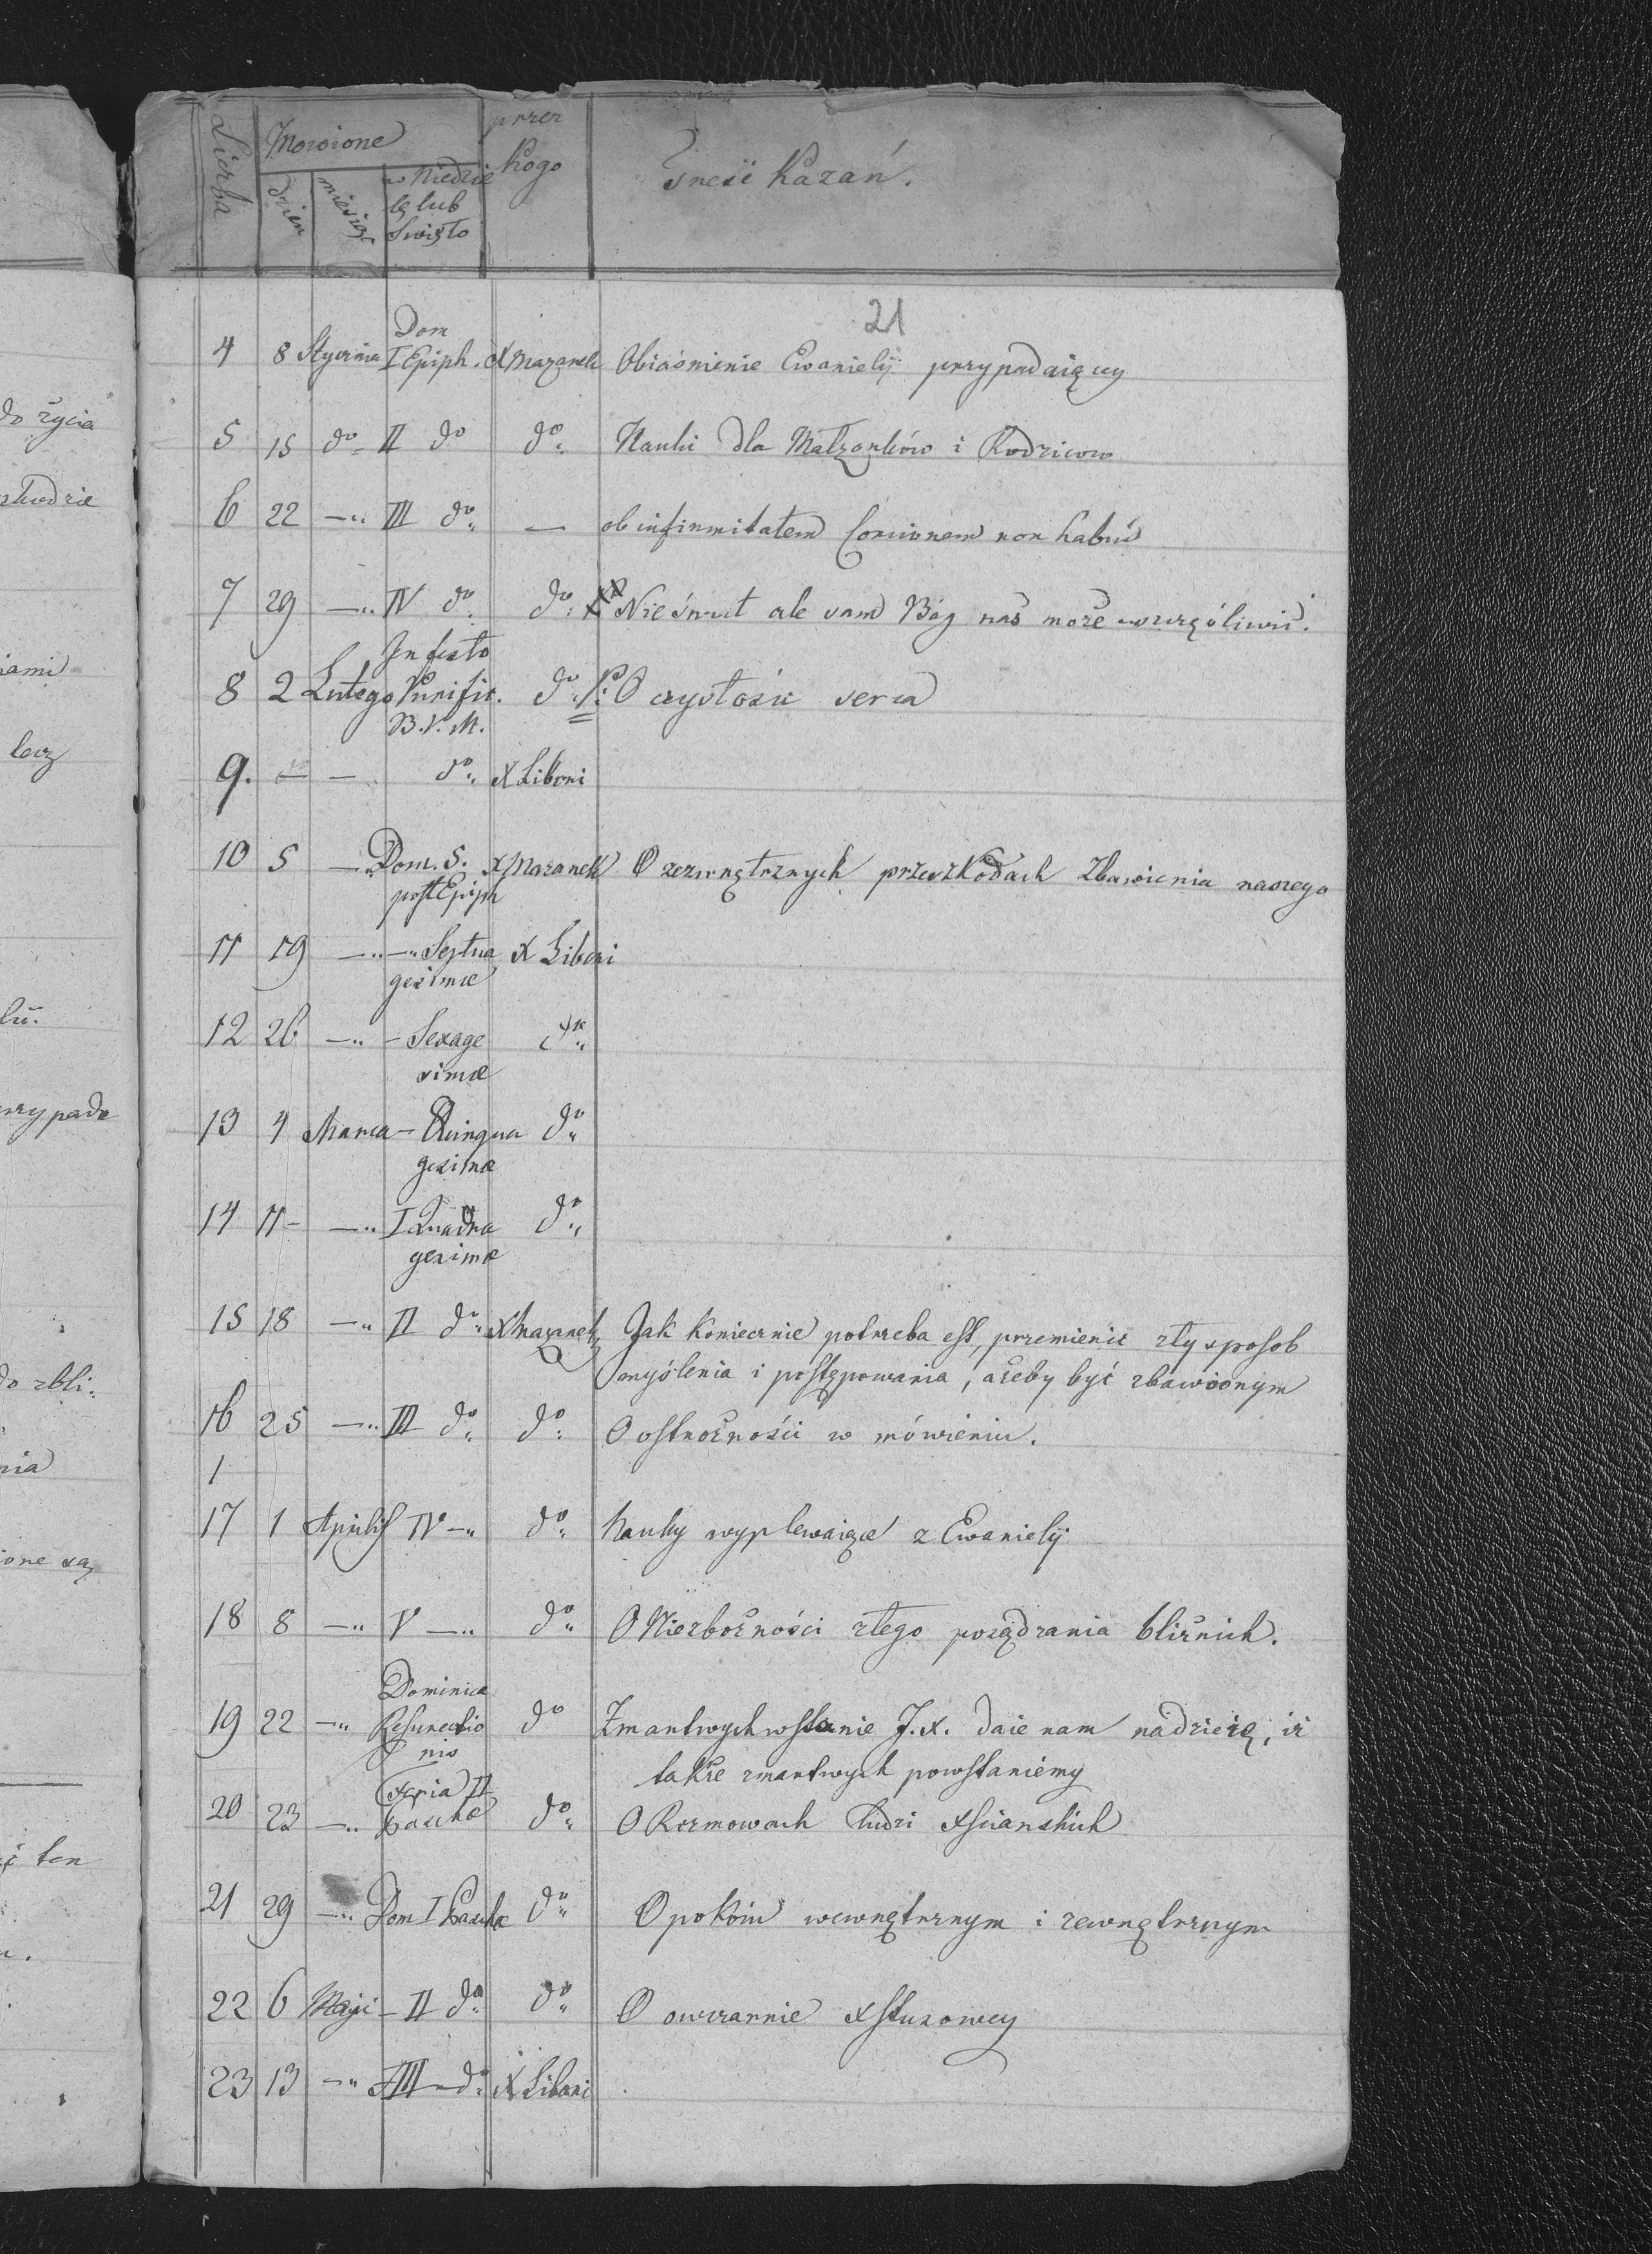 Liczba
Mowione
dzien
miesiąc
w Niedzie
lę lub
Święto
przez
kogo
Treść Kazań.
21
4 8 Stycznia Dom I Epiph. X Mazanek Obiaśnienie Ewanielÿ przypadaiący
5 15 do II do do Nauki dla Małżonków i Rodziców
6 22 —„ III do — ob infirmitatem Concionem non habui
7 29 —„ IV do do Nie świat ale sam Bóg nas może uszczęśliwić.
8 2 Lutego In festo Purific. B.V.M. do O czystości serca
9. do — do X Liboni
10 5 —„ Dom. 5. post Epiph X Mazanek O zezwnętrznych przeszkodach Zbawienia naszego
11 19 —„ —„ Septua
gesimæ X Liboni
12 26 —„ – Sexage
simæ do
13 4 Marca – Quinqua
gesimæ do
14 11 – —„ I Quadra
gesimæ do
15 18 —„ II do X Mazanek Jak koniecznie potrzeba est, przemienić zły sposob
myślenia i postępowania, ażeby być zbawionym
16 25 —„ III do do O ostrożności w mówieniu.
1
17 1 Aprilis IV —„ do Nauky wyplewaiące z Ewanielÿ
18 8 —„ V —„ do O Niezbożności złego posądzania bliźnich.
19 22 —„ Dominica
Resurectio
nis do Zmartwychwstanie J.X. daie nam nadzieię, iż
także zmartwych powstaniemy
20 23 —„ Feria II
Paschæ do O Rozmowach ludzi Xściańskich
21 29 —„ Dom I Paschæ do O pokóiu wewnętrznym i zewnętrznym
22 6 Maji – II do do O owczarnie Xstusowey
23 13 —„ III do X Liboni